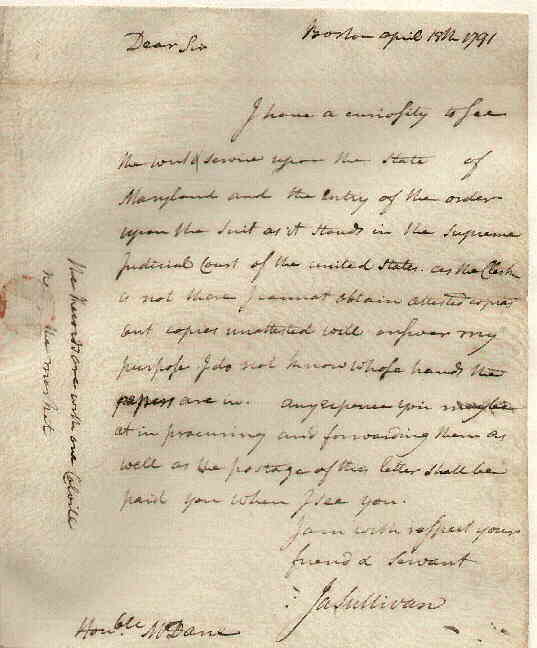 Boston april 18th 1791
Dear Sir
I have a curiosity to see
the writ & service upon the State of
Maryland and the Entry of the order
upon the Suit as it stands in the Supreme
Judicial Court of the united States. as the Clerk
is not there I cannot obtain attested copies
but copies unattested will answer my
purpose I do not know whose hands the
papers are in. any expence you may be
at in procuring and forwarding them as
well as the postage of this letter shall be
paid you when I see you.
I am with respect your
friend & Servant
Ja Sullivan
Honble Mr Dane
the Records are with one
the market